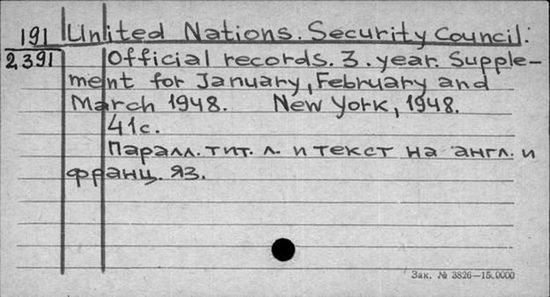 191 United Nations. Security Council:
2391 Official records. 3. year. Supple-
ment for January, February and
March 1948. New York, 1948.
41с.
Паралл. тит. л. и текст на англ. и
франц. яз.
Зак. № 3826—15.0000